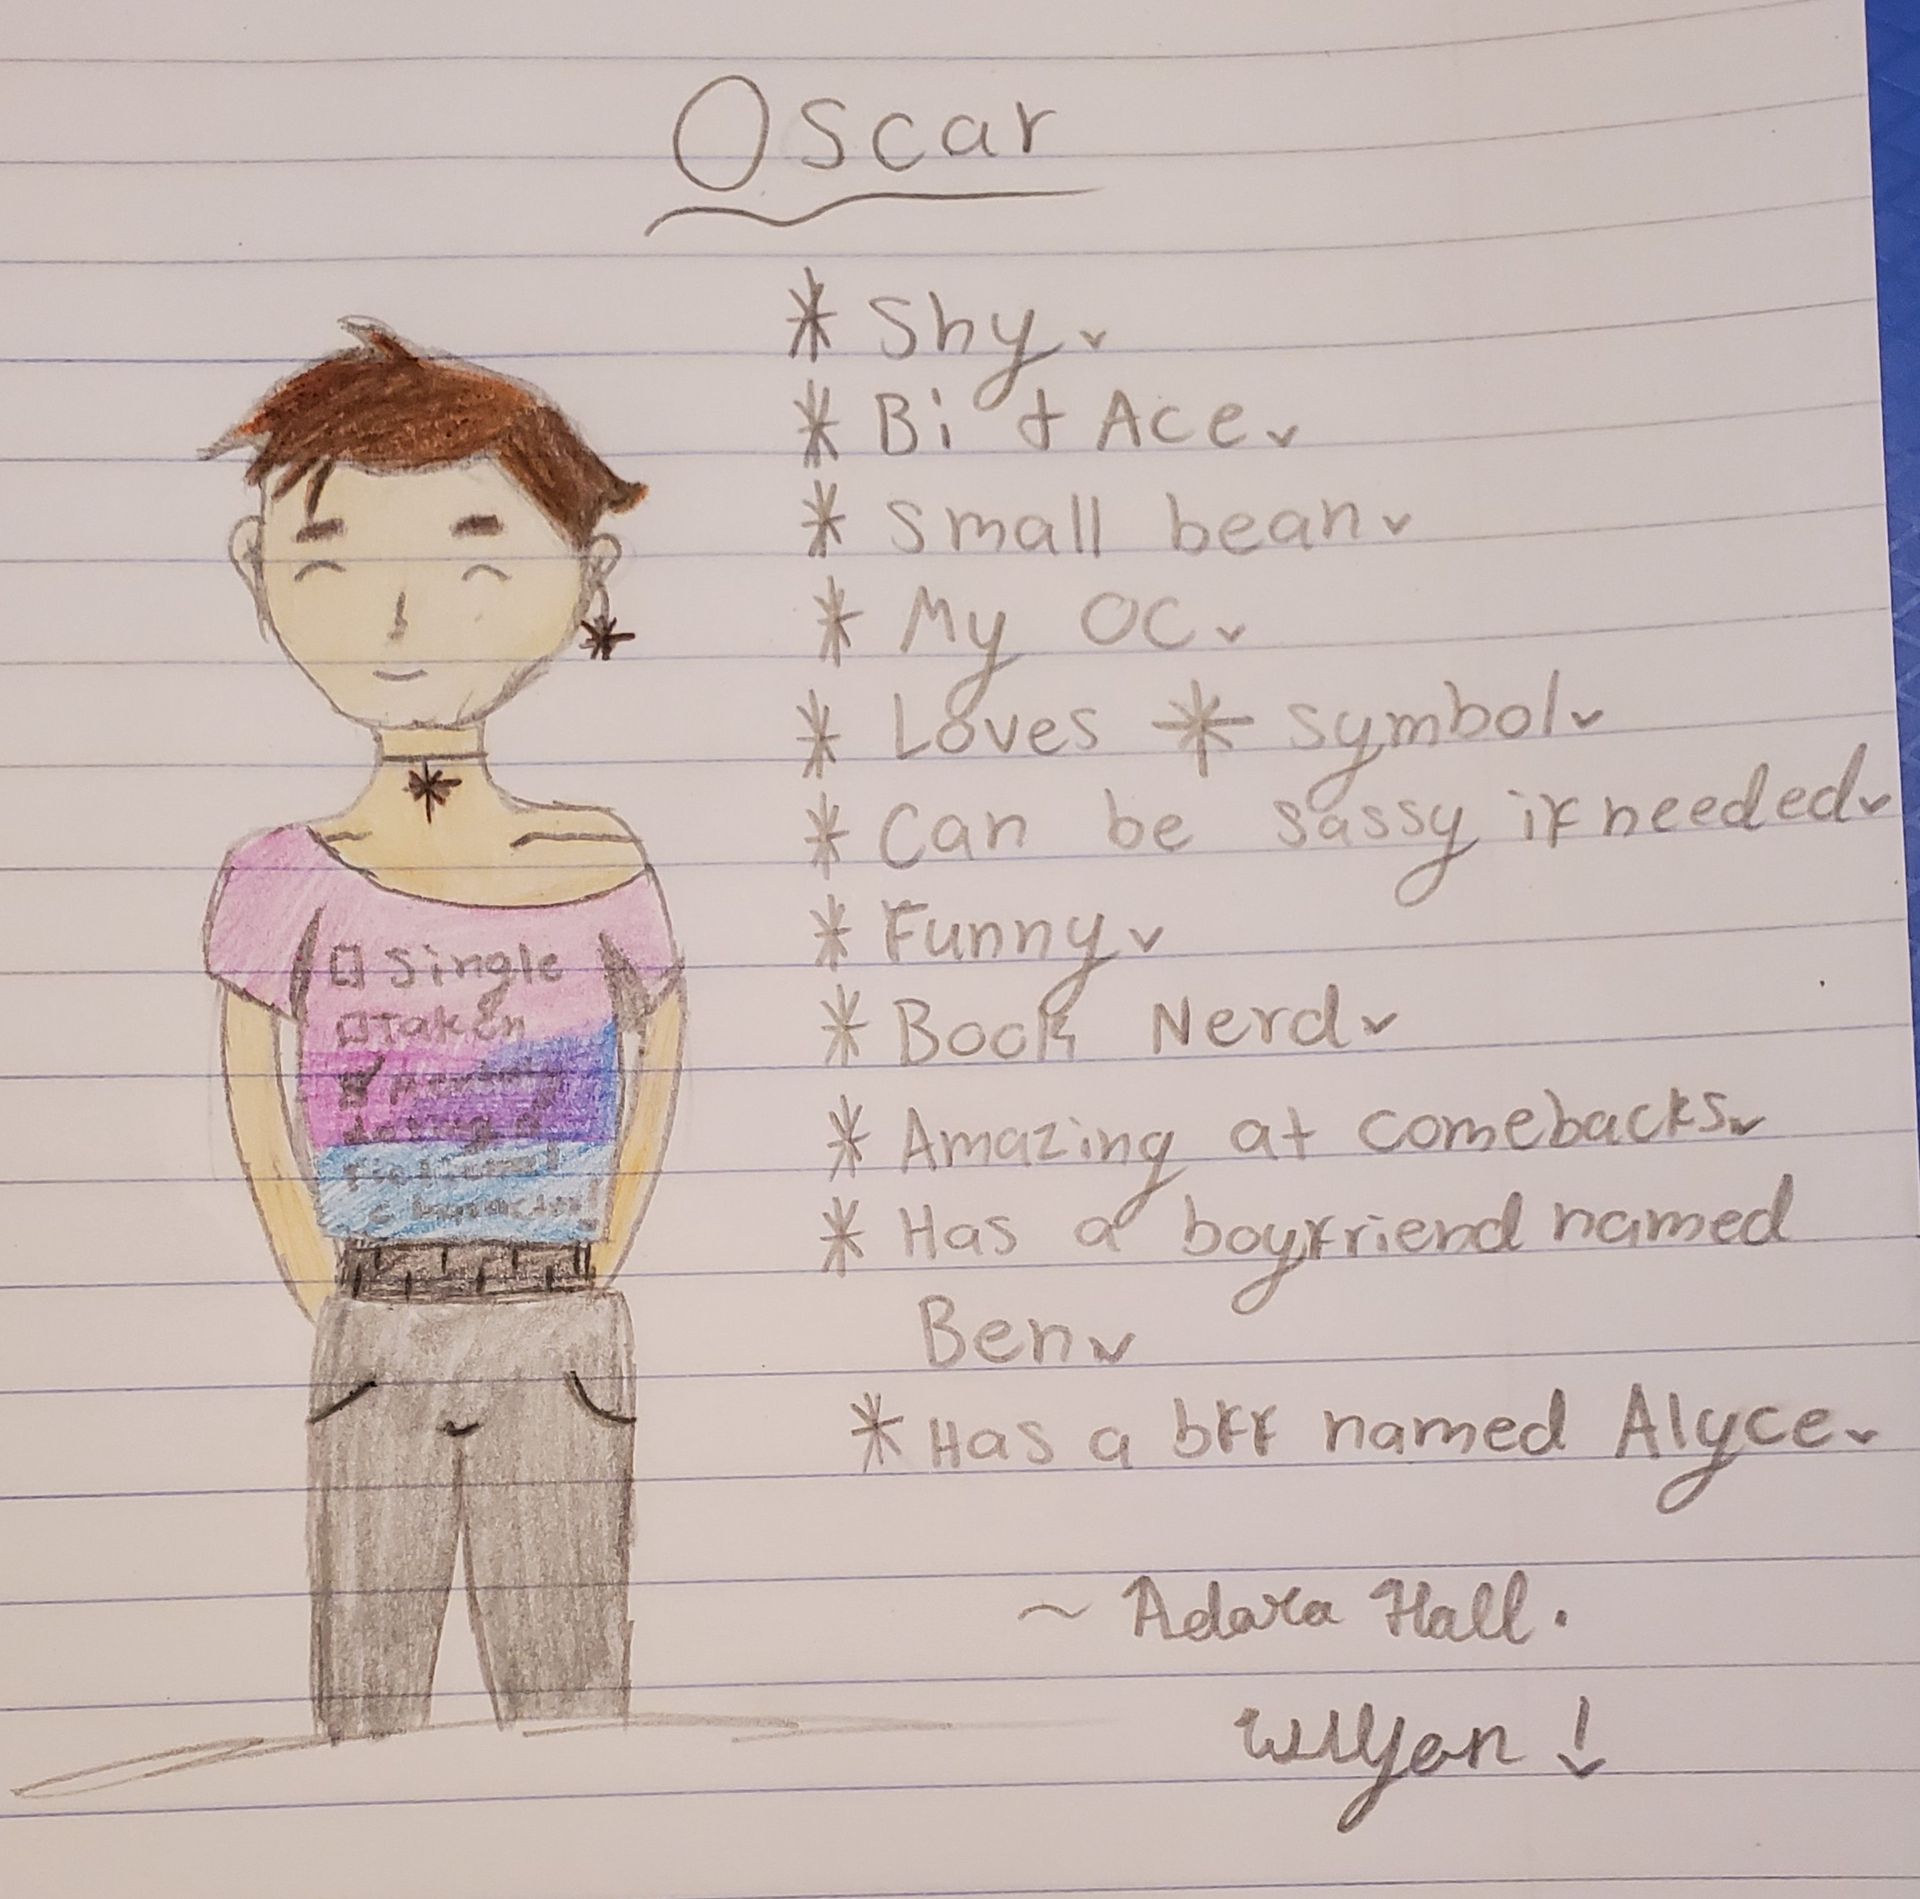 Oscar
* Shy
* Bi & Ace
* Small bean
* My OC
* Loves * symbol
* Can be sassy if needed
* Funny
* Book Nerd
* Amazing at comebacks
* Has a boyfriend named
Ben
* Has a bff named Alyce
□ Single
□ Taken
☑ Mentally
dating a
fictional
character!
~ Adara Hall.